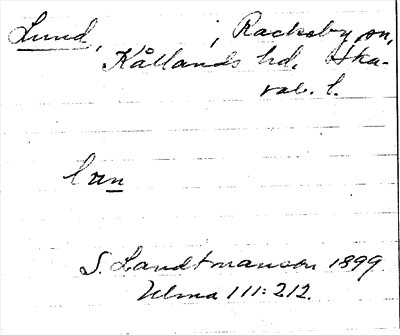 Lund, ; Racksby sn,
Kållands hd, Ska-
rab. l.
S. Landtmanson 1899
Ulma 111:212.